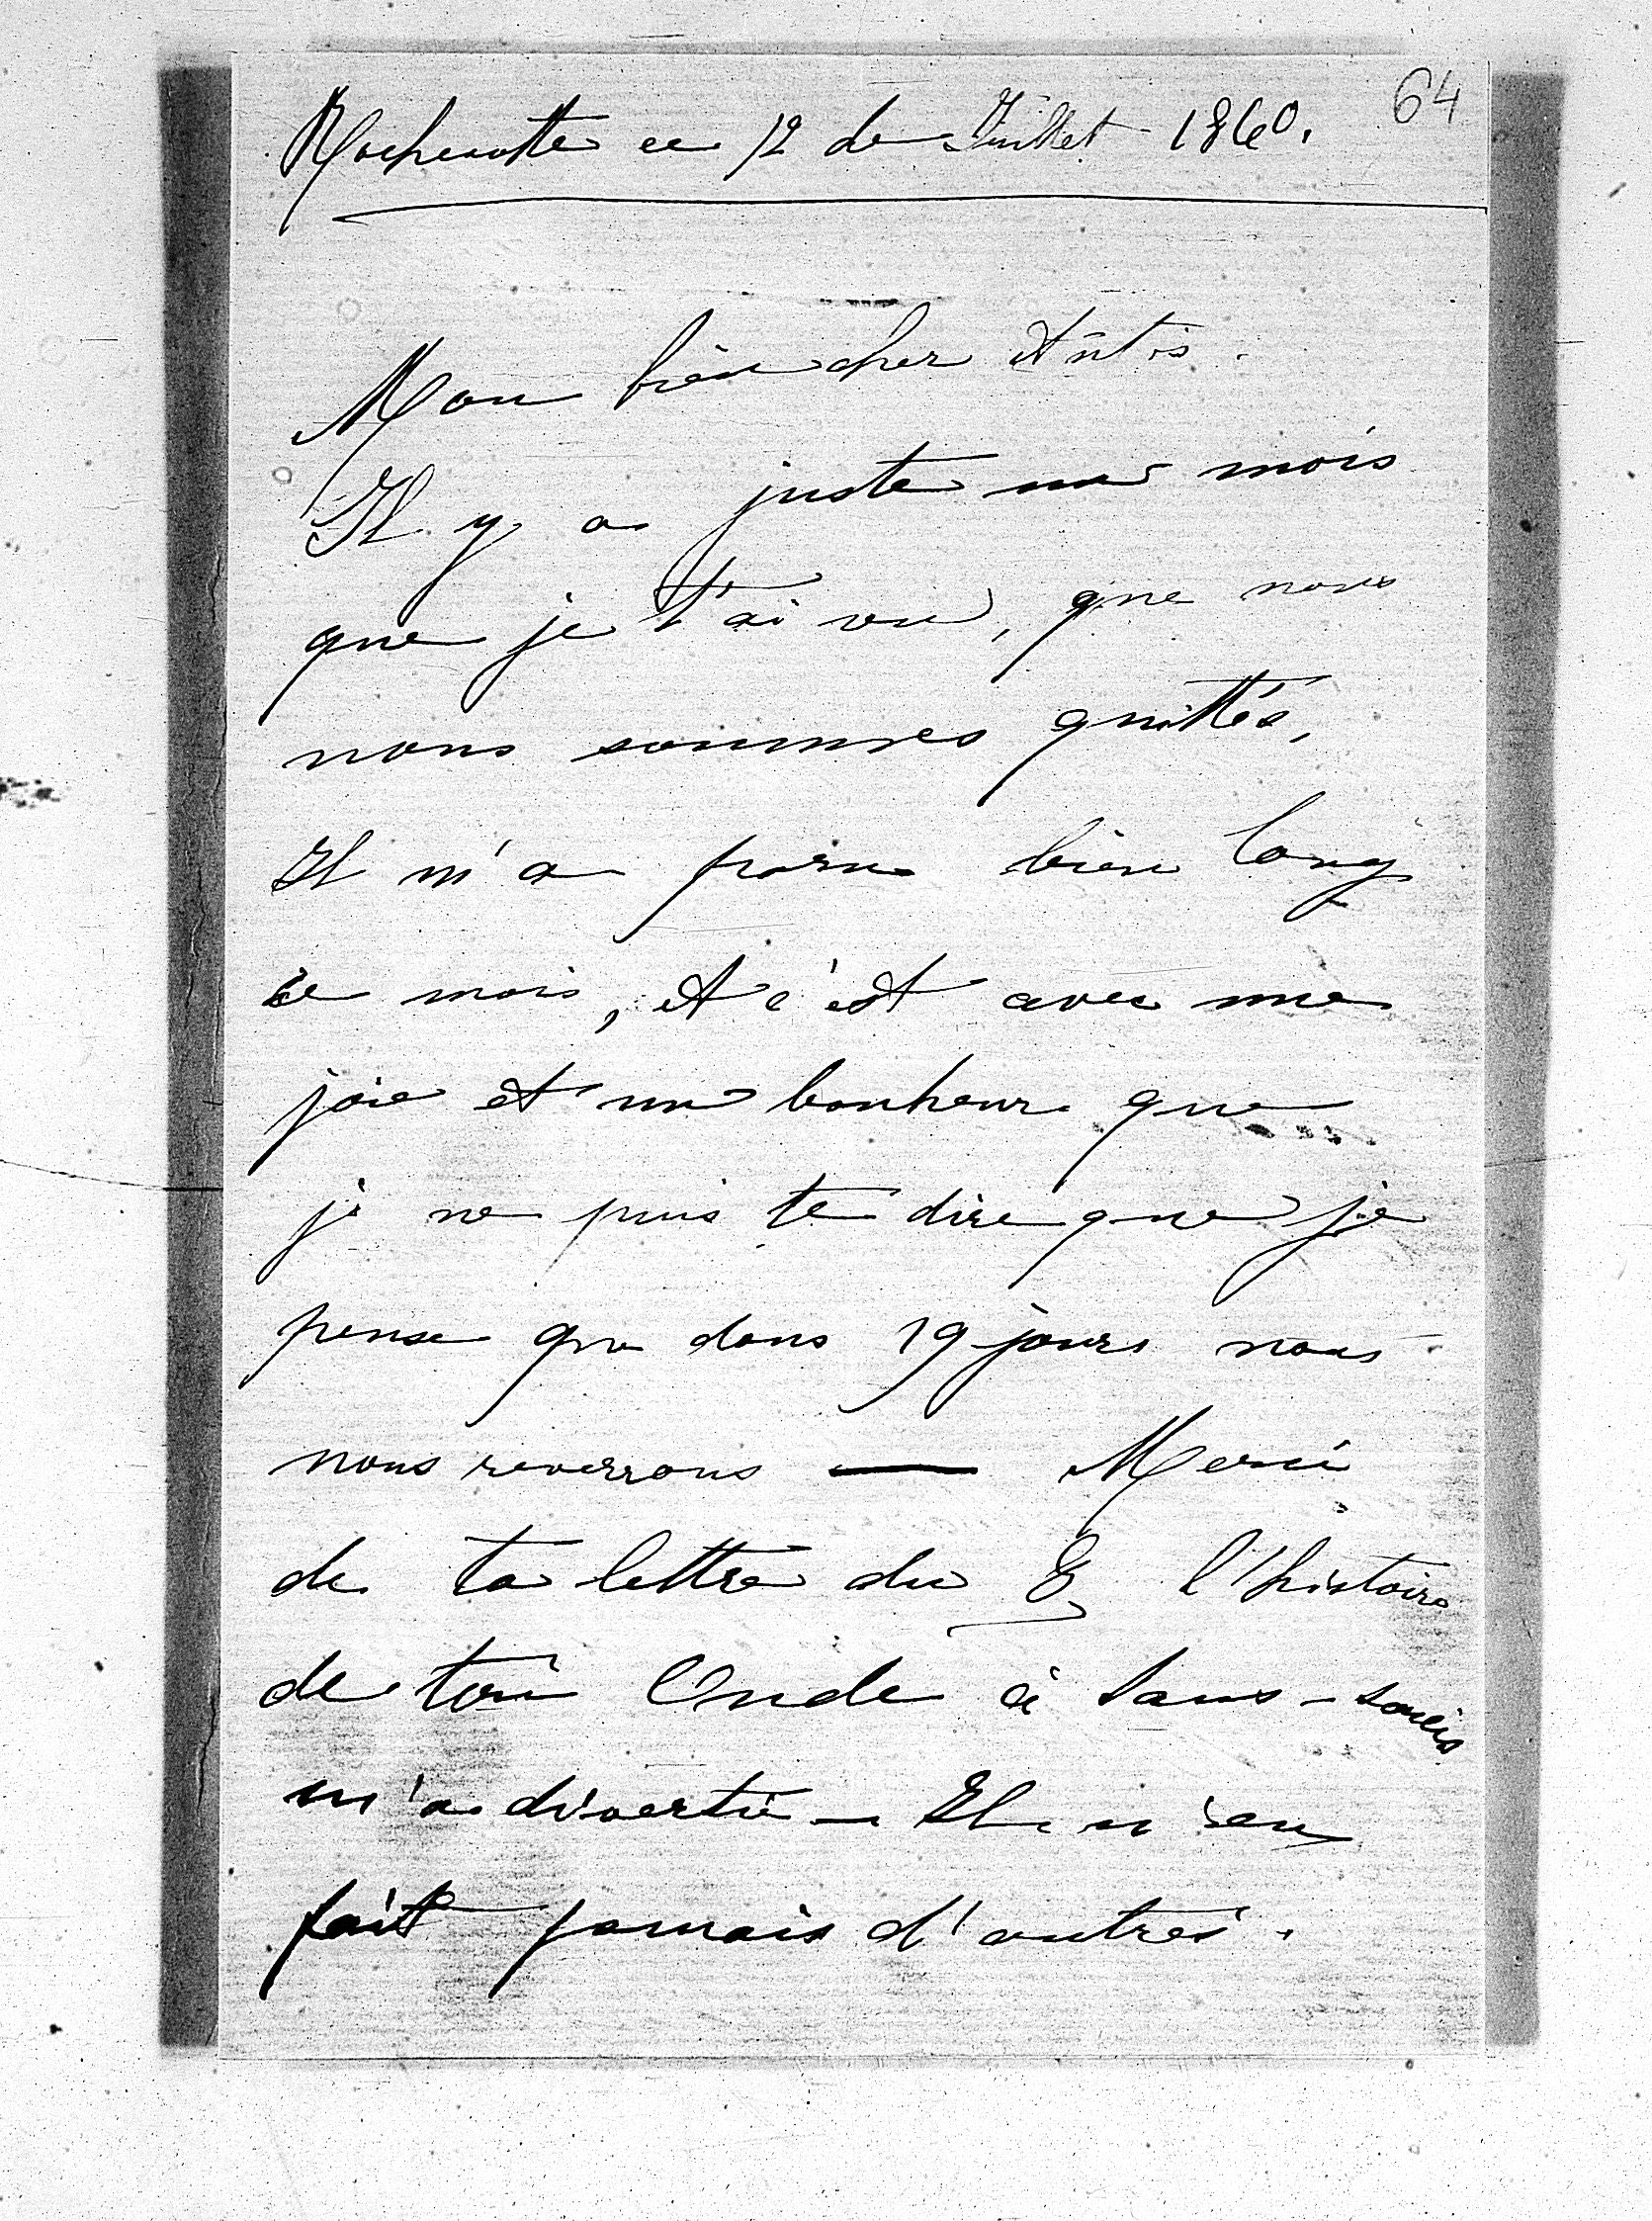 64
Rochecotte ce 12 de Juillet 1860.
Mon bien cher
Il y a juste un mois
que je t'ai vu, que nous
nous sommes quittés,
Il m'a paru bien long
ce mois, et c'est avec une
joie et un bonheur que
je ne puis te dire que je
pense que dans 19 jours nous
nous reverrons — Merci
de ta lettre du 8 l'histoire
de ton Oncle à Sans-Soucis
m'a divertie — Il n'en
fait jamais d'autres.